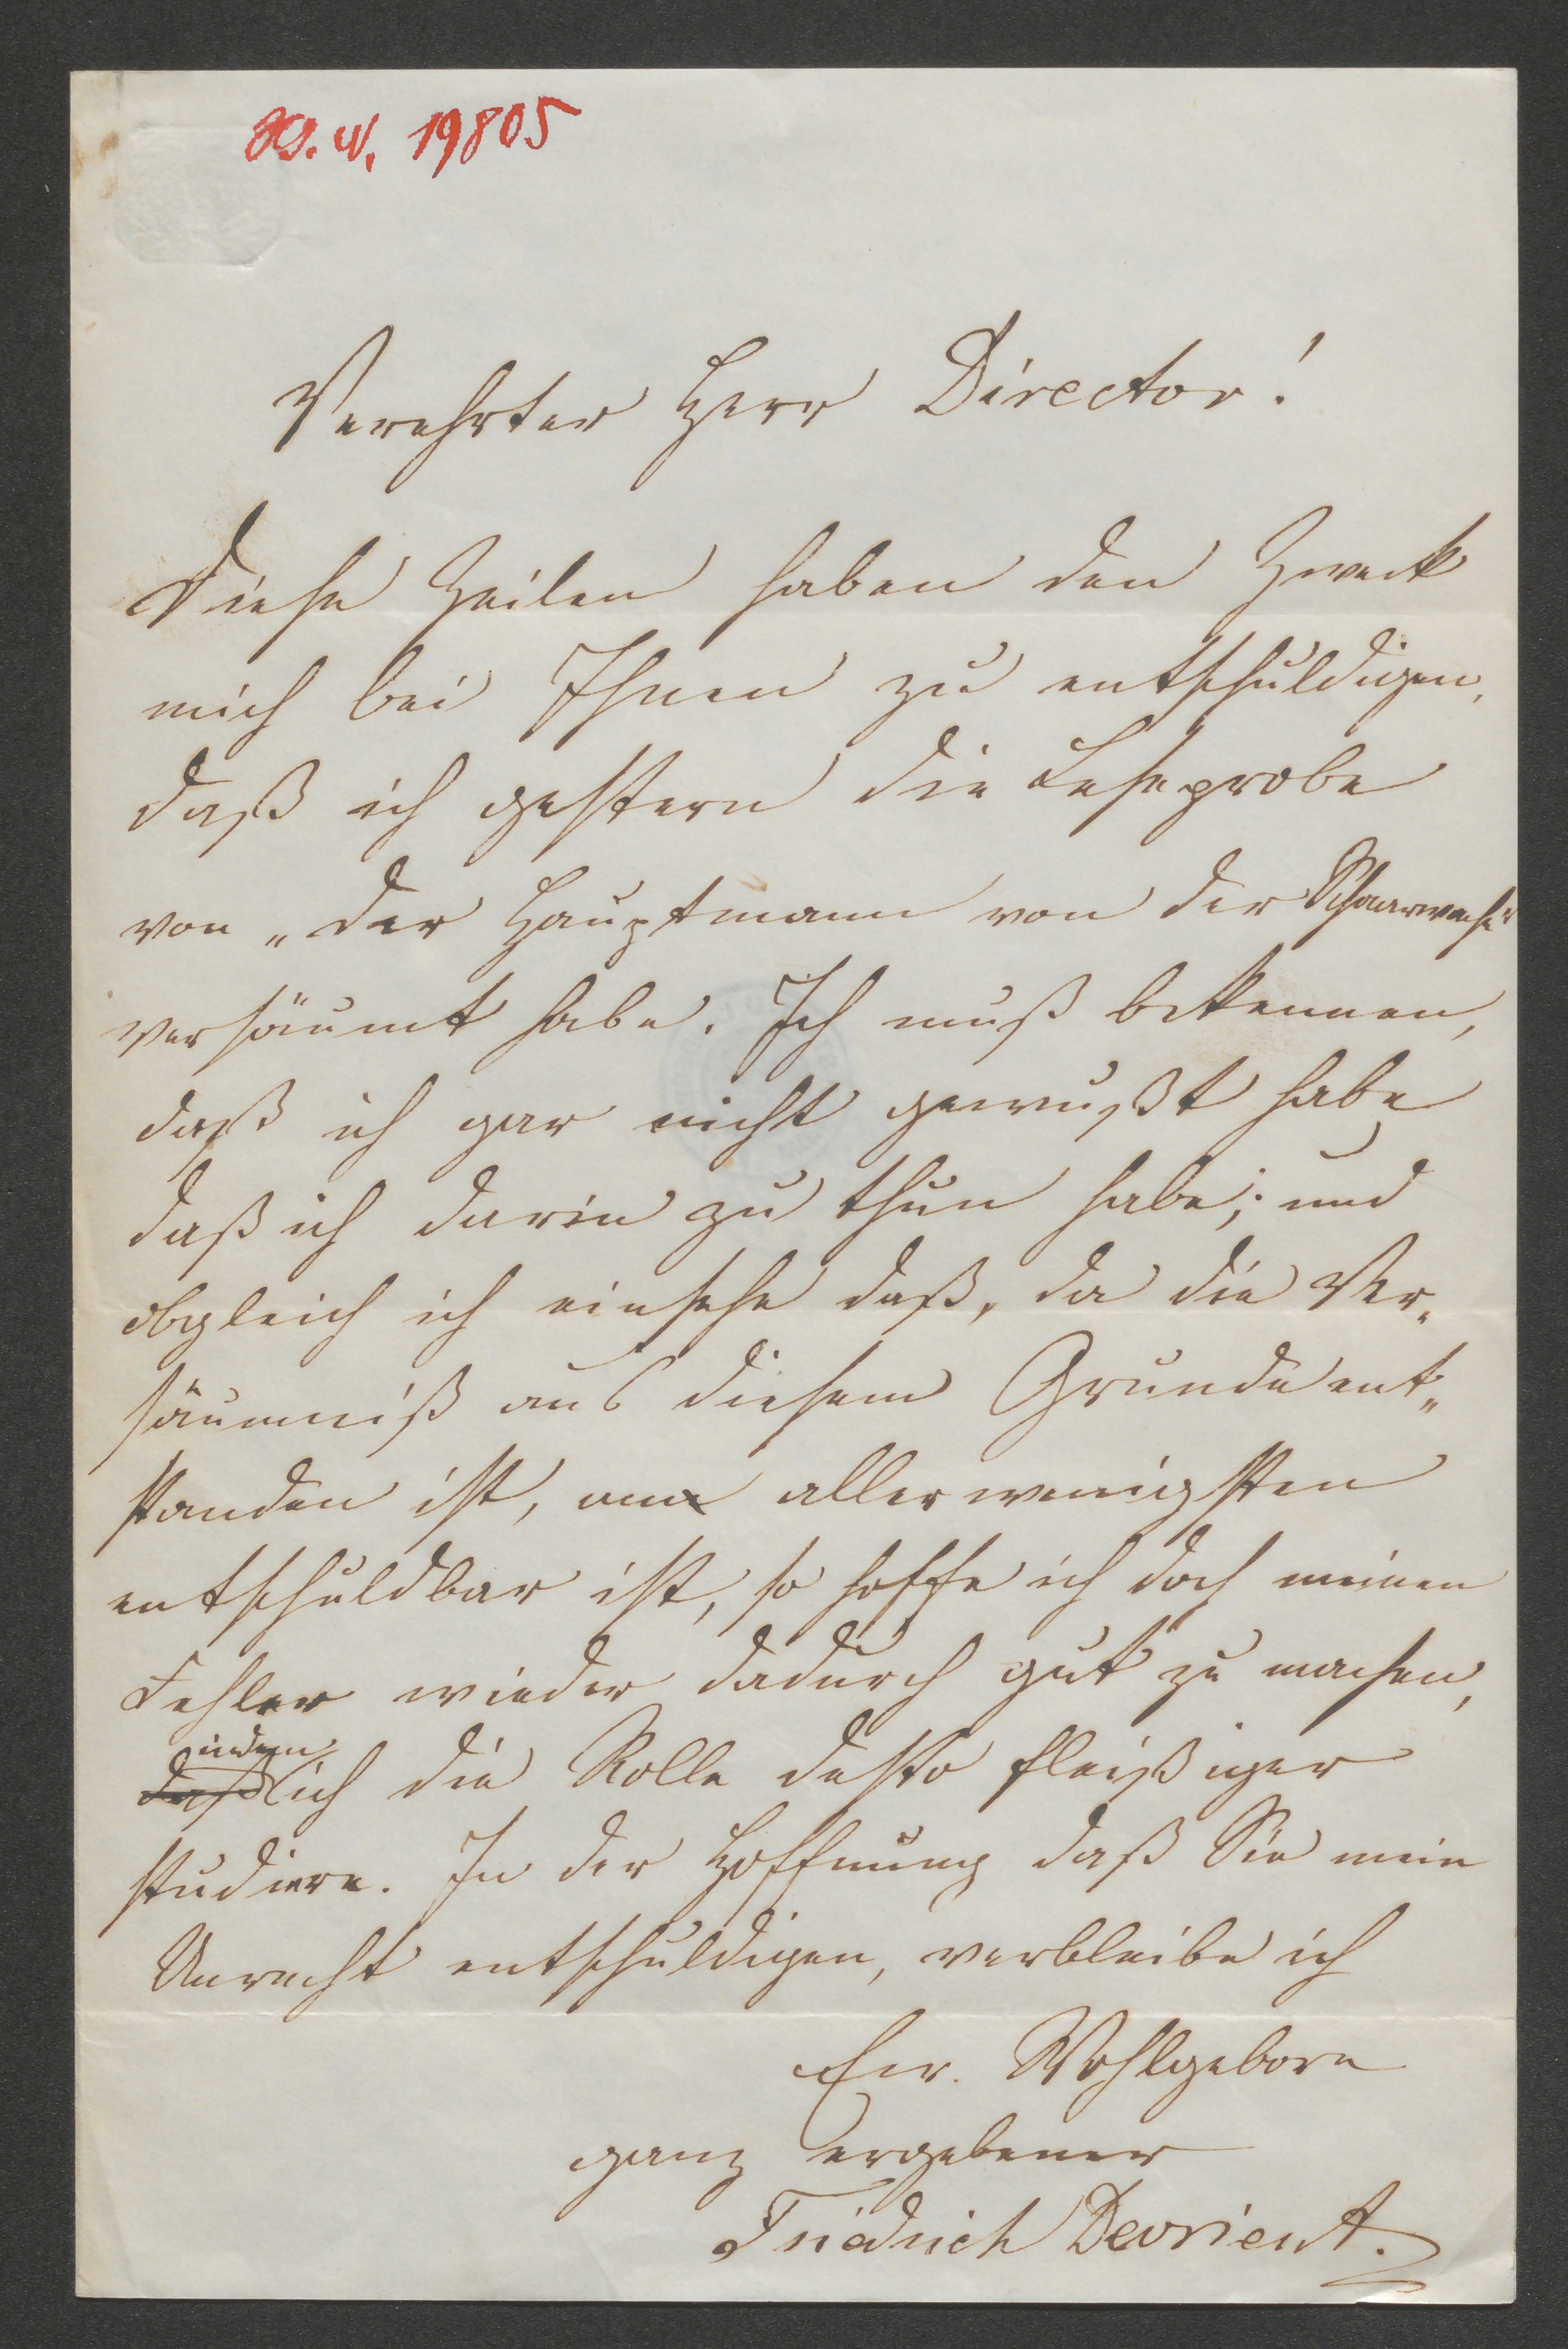 A. N. 19805
Verehrter Herr Director!
Diese Zeilen haben den Zweck
mich bei Ihnen zu entschuldigen,
daß ich gestern die Leseprobe
von „der Hauptmann von der Schaarwache“
versäumt habe. Ich muß bekennen,
daß ich gar nicht gewußt habe
daß ich darin zu thun habe; und
obgleich ich einsehe daß, da die Ver„
säumniß aus diesem Grunde ent„
standen ist, am allerwenigsten
entschuldbar ist, so hoffe ich doch meinen
Fehler wieder dadurch gut zu machen,
indem
daß ich die Rolle desto fleißiger
studiere. In der Hoffnung daß Sie mein
Unrecht entschuldigen, verbleibe ich
Eur. Wohlgeborn
ganz ergebener
Friedrich Devrient.